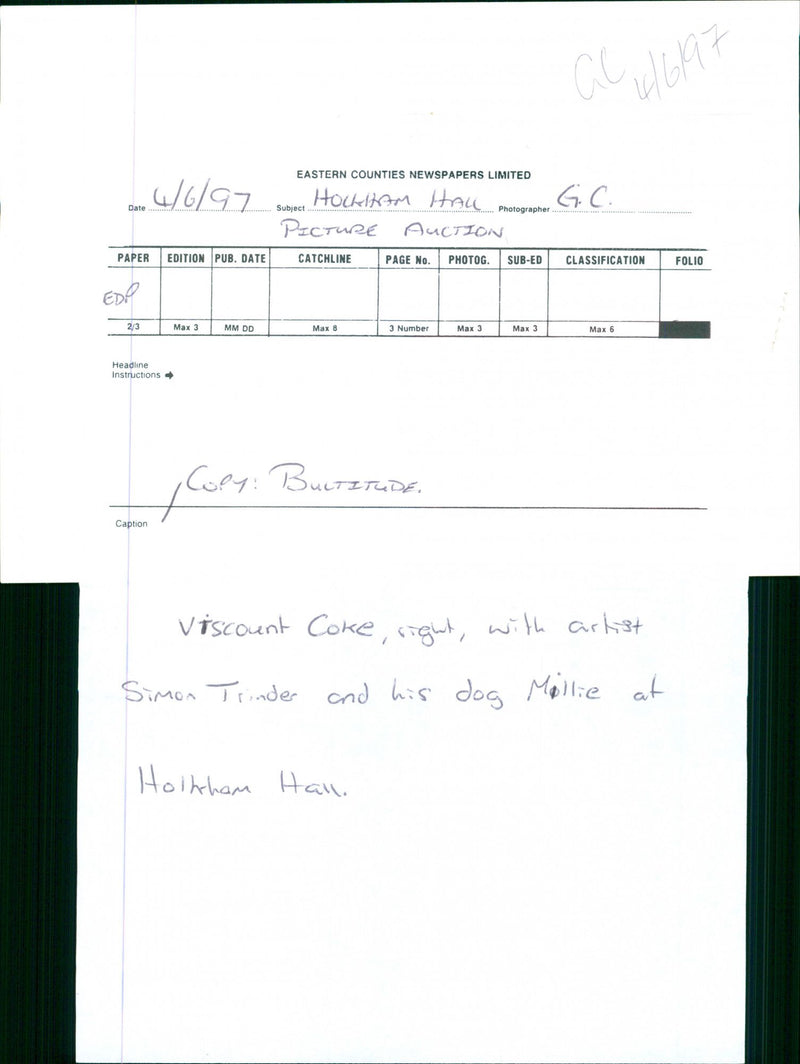 GC 4/6/97
EASTERN COUNTIES NEWSPAPERS LIMITED
Date 4/6/97 Subject HOLKHAM HALL Photographer G.C.
PICTURE AUCTION
PAPER EDITION PUB. DATE CATCHLINE PAGE No. PHOTOG. SUB-ED CLASSIFICATION FOLIO
EDP
2/3 Max 3 MM DD Max 8 3 Number Max 3 Max 3 Max 6
Headline
Instructions ➔
COPY: BULTITUDE.
Caption
Viscount Coke, right, with artist
Simon Trinder and his dog Mollie at
Holkham Hall.